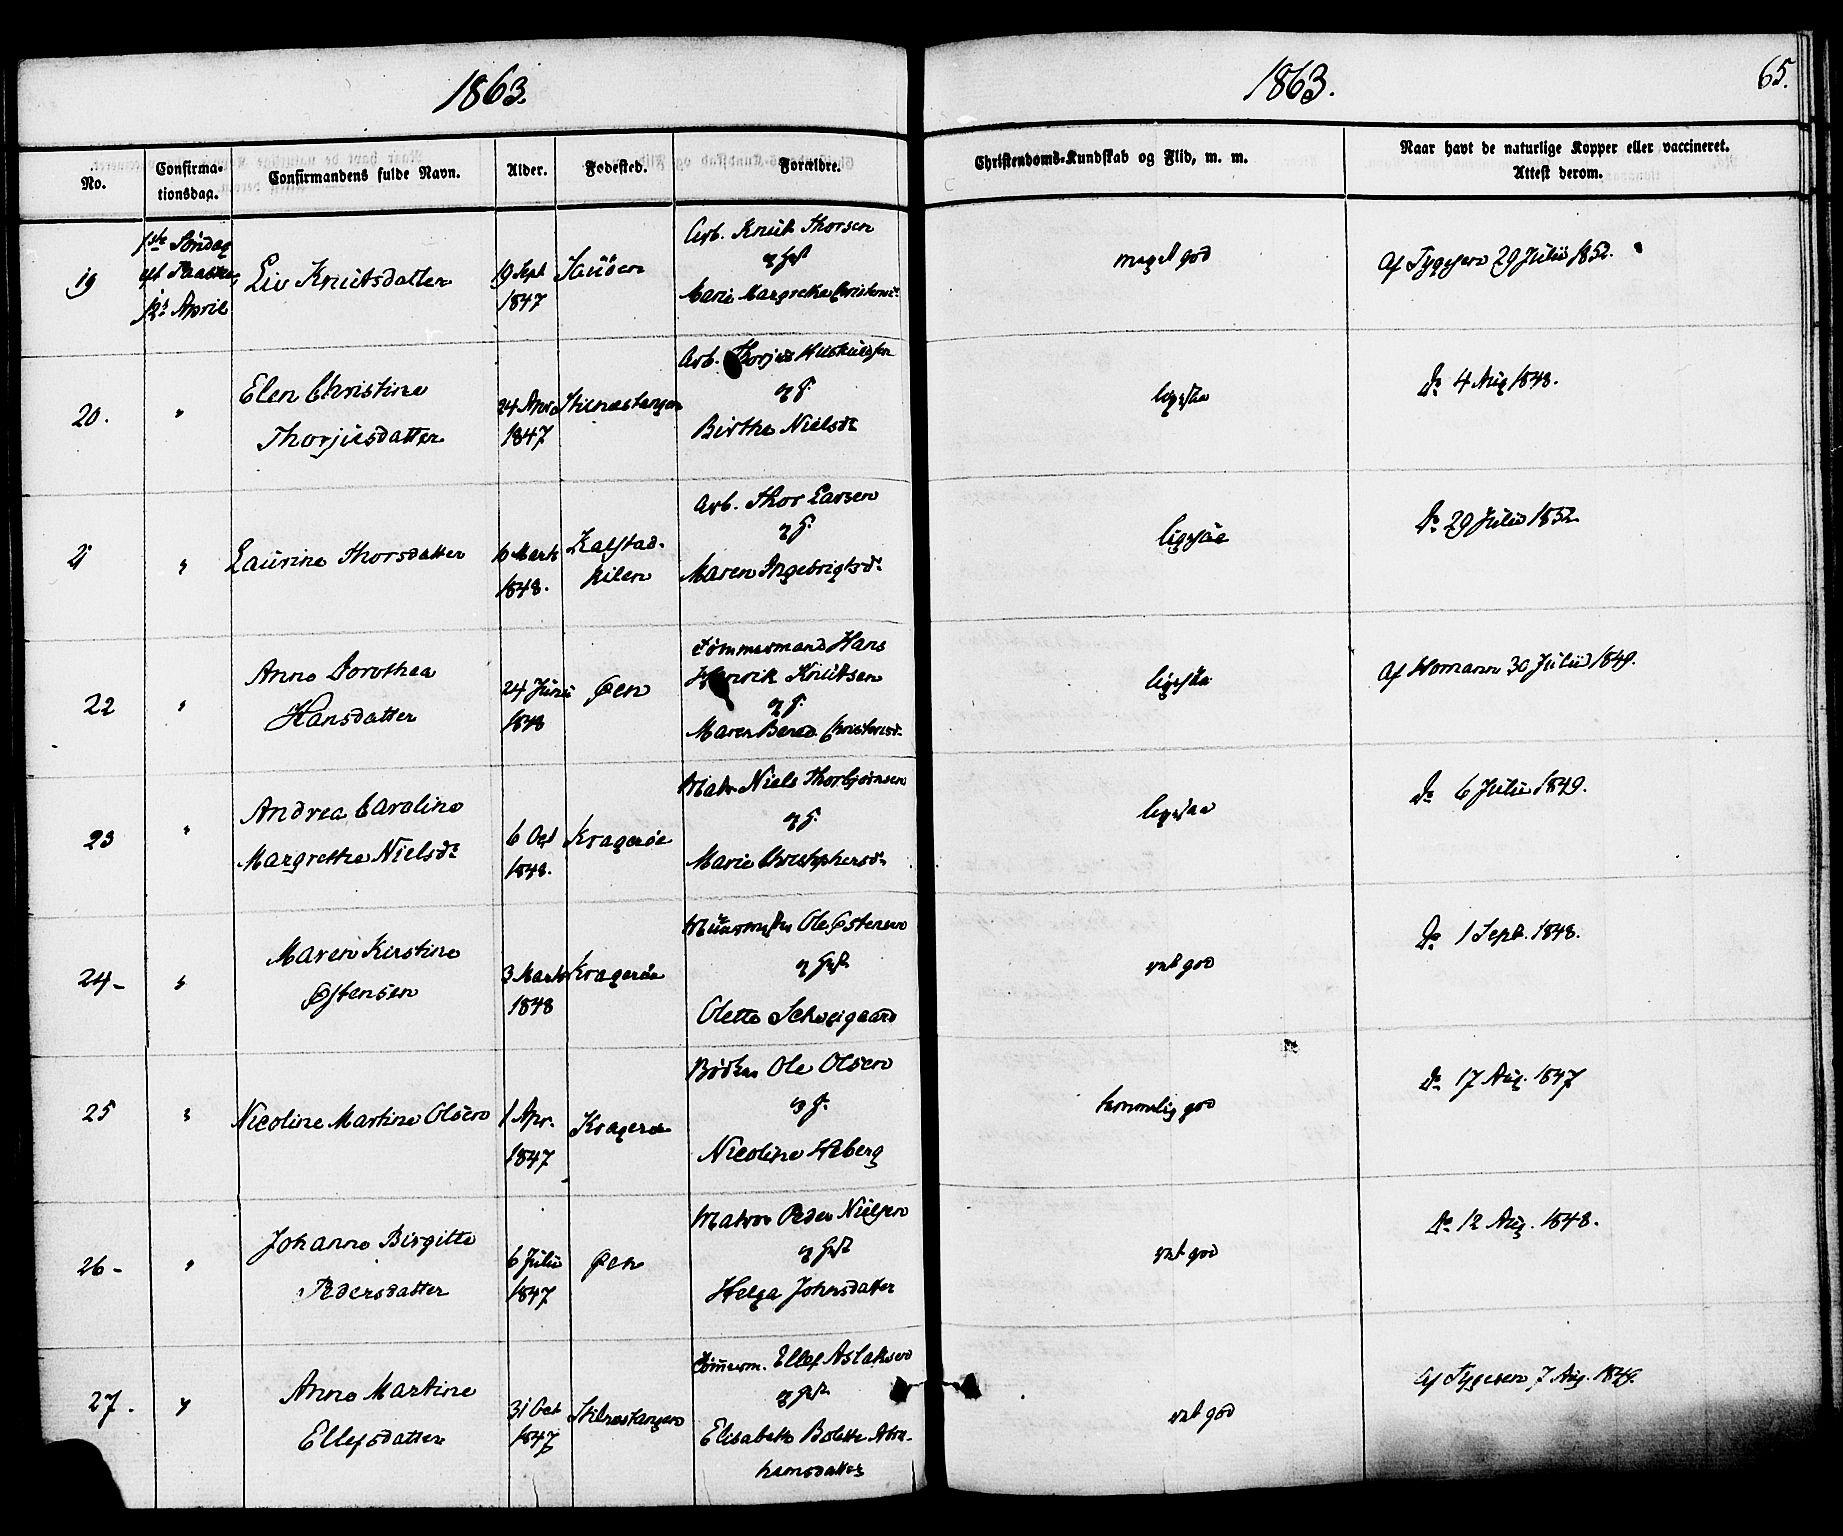 1863.
1863.
65.
No.
Confirma-
tionsdag.
Confirmandens fulde Navn.
Alder.
Fødested.
Forældre.
Christendoms-Kundskab og Flid, m. m.
Naar havt de naturlige Kopper eller vaccineret.
Attest derom.
19
1ste Søndag
eft Paaske,
12te April
Liv Knutsdatter
19 Sept
1847
Sauøen
Arb. Knut Thorsen
og Hst
Marie Margrethe Christensd.
meget god
Af Tygesen 29 Julii 1852.
20.
"
Elen Christine
Thorjusdatter
24 Apr
1847
Stilnestangen
Arb. Thorjus
og H.
Birthe Nielsd.
ligesaa
Do 4 Aug 1848.
21
"
Laurine Thorsdatter
6 Marts
1848.
Kalstad-
kilen
Arb. Thor Larsen
og H.
Maren Ingebrigtsd.
ligesaa
Do 29 Julii 1852
22
"
Anne Dorothea
Hansdatter
24 Juni
1848
Øen
Tømmermand Hans
Henrik Knutsen
og H.
Maren Bened. Christensd.
ligesaa
Af Homann 30 Julii 1849.
23
"
Andrea Caroline
Margrethe Nielsd.
6 Oct
1848.
Kragerøe
Matr. Niels Thorbjørnsen
og H.
Marie Christophersd.
ligesaa
Do 6 Julii 1849.
24-
"
Maren Kirstine
Østensen
3 Marts
1848
Kragerøe
Muurmester Ole Østensen
og Hst.
Olette Schweigaard
mt god
Do 1 Sept. 1848.
25
"
Nicoline Martine Olsen
1 Apr.
1847
Kragerøe
Bødker Ole Olsen
og H.
Nicoline Heberg
temmelig god
Do 17 Aug. 1847
26-
"
Johanne Birgitte
Pedersdatter
6 Julii
1847
Øen
Matros Peder Nielsen
og Hst
Helga Johnsdatter
mt god
Do 12 Aug. 1848.
27.
"
Anne Martine
Ellefsdatter
31 Oct
1847
Stilnestangen
Tømmerm. Ellef Aslaksen
og Hst.
Elisabeth Bolette Abra-
hamsdatter
mt god
Af Tygesen 7 Aug. 1849.